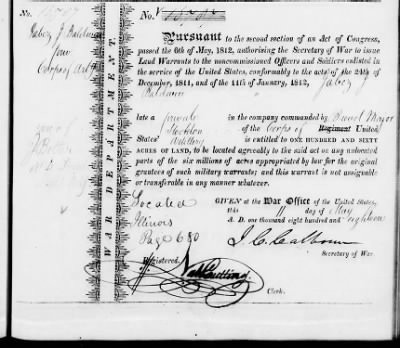 No.
No.
Jabez J Baldwin
Corps of Arty
WAR DEPARTMENT.
Pursuant to the second section of an Act of Congress,
passed the 6th of May, 1812, authorising the Secretary of War to issue
Land Warrants to the noncommissioned Officers and Soldiers enlisted in
the service of the United States, conformably to the acts of the 24th of
December, 1811, and of the 11th of January, 1812, Jabez J
Baldwin
late a
in the company commanded by Brevet Major
of the Corps of Regiment United
States' Artillery is entitled to ONE HUNDRED AND SIXTY
ACRES OF LAND, to be located agreeably to the said act on any unlocated
parts of the six millions of acres appropriated by law for the original
grantees of such military warrants; and this warrant is not assignable
or transferable in any manner whatever.
Located
Illinois
Page 680
GIVEN at the War Office of the United States,
this 11 day of May
A. D. one thousand eight hundred and Eighteen
J. C. Calhoun
Secretary of War.
Registered,
Clerk.